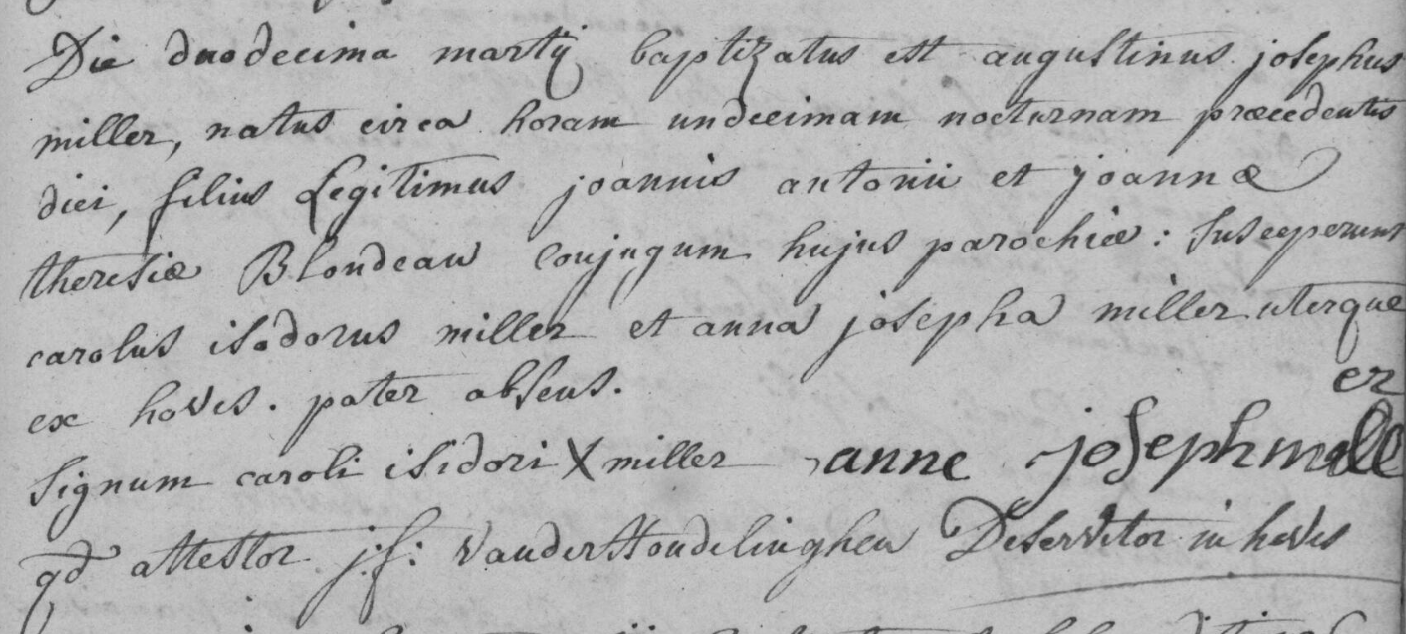 Die duodecima martij baptizatus est augustinus josephus
miller, natus circa horam undecimam nocturnam præcedentis
diei, filius Legitimus joannis antonii et joannæ
theresiæ Blondeau conjugum hujus parochiæ: susceperunt
carolus isodorus miller et anna josepha miller uterque
ex hoves. pater absens.
er
signum caroli isidori X miller anne joseph mill
qd attestor j: f: VanderStondelinghen Deservitor in hoves